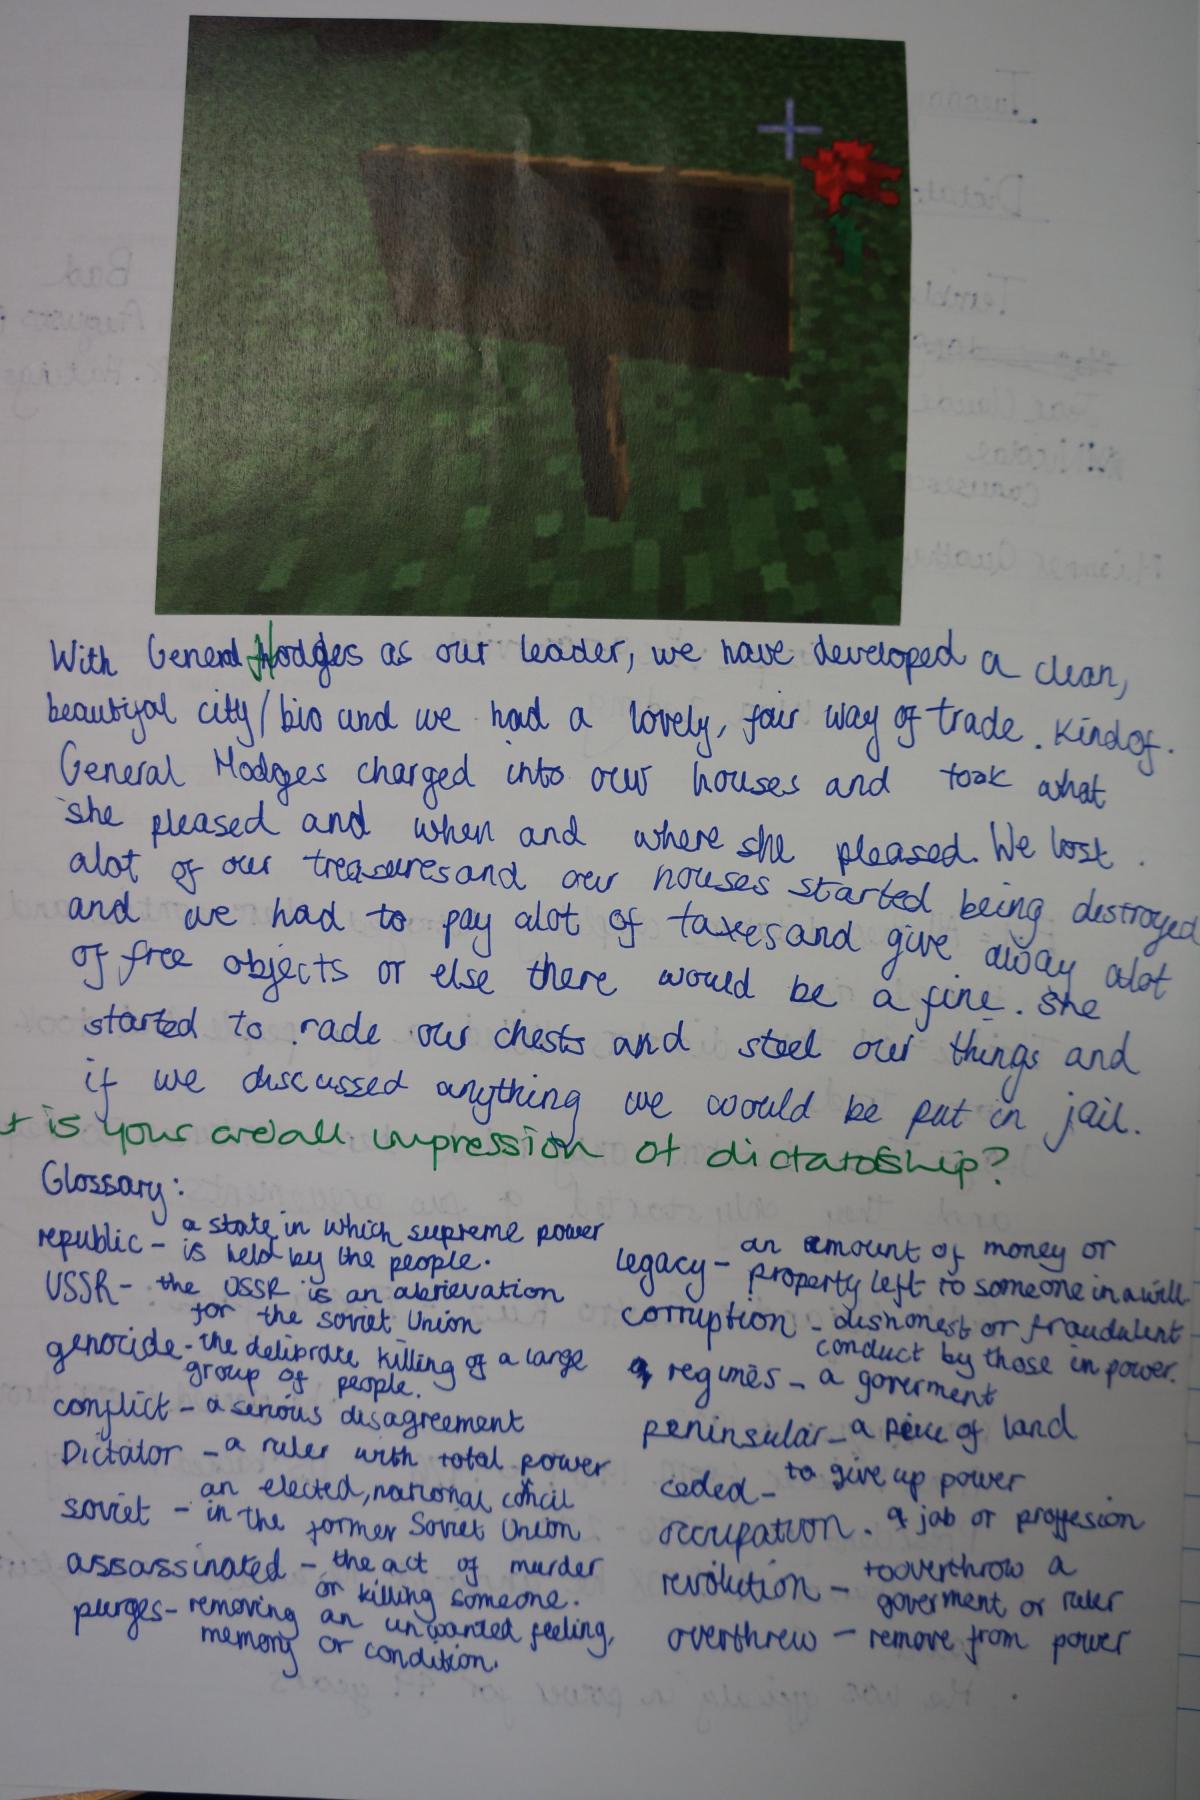 With General Hodges as our leader, we have developed a clean,
beautiful city/bio and we had a lovely, fair way of trade. Kind of.
General Hodges charged into our houses and took what
she pleased and when and where she pleased. We lost
alot of our treasures and our houses started being destroyed
and we had to pay alot of taxes and give away alot
of free objects or else there would be a fine. She
started to rade our chests and steel our things and
if we discussed anything we woould be put in jail.
t is your overall impression of dictatorship?
Glossary:
republic - a state in which supreme power
is held by the people.
USSR - the USSR is an abrievation
for the soviet Union
genocide - the deliprate killing of a large
group of people.
conflict - a serious disagreement
Dictator - a ruler with total power
soviet - an elected, national concil
in the former Soviet Union
assassinated - the act of murder
or killing someone.
purges - removing an unwanted feeling,
memory or condition.
legacy - an amount of money or
property left to someone in a will.
corruption - dishonest or fraudulent
conduct by those in power.
regimes - a goverment
peninsular - a piece of land
ceded - to give up power
occupation. a job or proffesion
revolution - to overthrow a
goverment or ruler
overthrew - remove from power